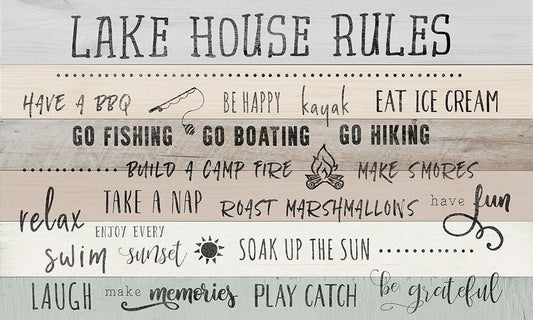 LAKE HOUSE RULES
HAVE A BBQ BE HAPPY kayak EAT ICE CREAM
GO FISHING GO BOATING GO HIKING
BUILD A CAMP FIRE MAKE SMORES
relax TAKE A NAP ROAST MARSHMALLOWS have fun
ENJOY EVERY
swim sunset SOAK UP THE SUN
LAUGH make memories PLAY CATCH be grateful